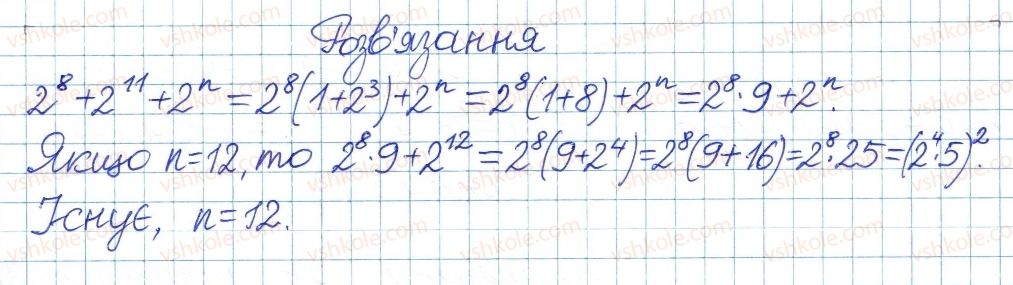 Розв'язання
2⁸+2¹¹+2ⁿ=2⁸(1+2³)+2ⁿ=2⁸(1+8)+2ⁿ=2⁸·9+2ⁿ.
Якщо n=12, то 2⁸·9+2¹²=2⁸(9+2⁴)=2⁸(9+16)=2⁸·25=(2⁴·5)².
Існує, n=12.